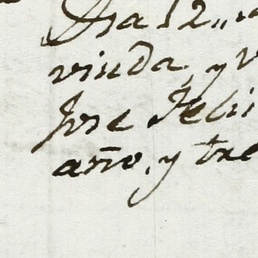 Dia 12,,
viuda, y V
Jose Feli
año, y tre